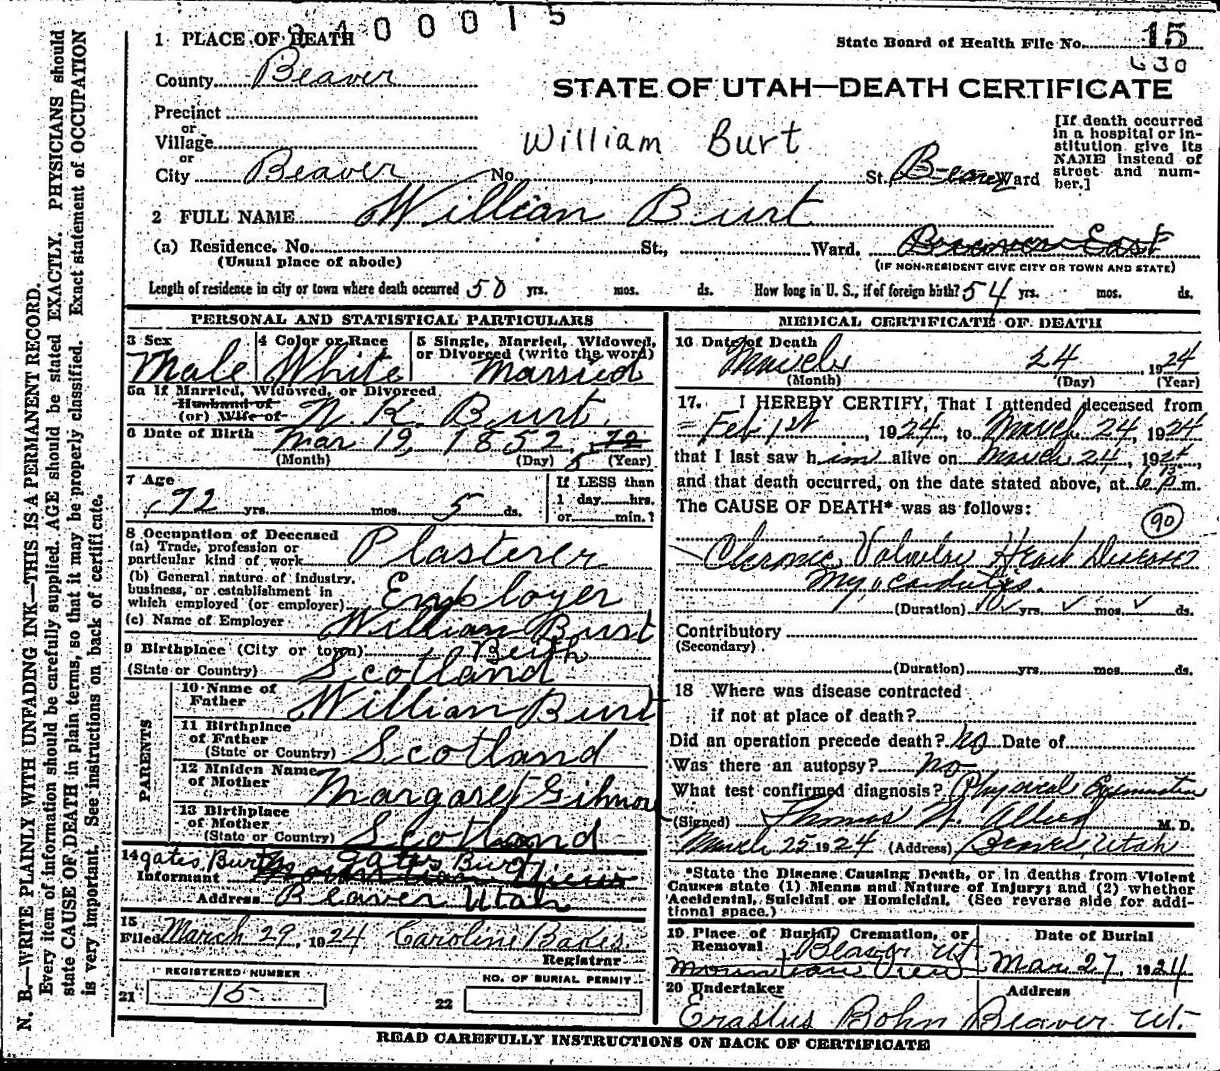 3400015
1 PLACE OF DEATH
State Board of Health File No. 15
630
County Beaver
STATE OF UTAH—DEATH CERTIFICATE
Precinct
or
Village
William Burt
[If death occurred in a hospital or institution give its NAME instead of street and number.]
or
City Beaver No. St. Beaver Ward
2 FULL NAME William Burt
(a) Residence. No. St., Ward. Beaver East
(Usual place of abode)
(IF NON-RESIDENT GIVE CITY OR TOWN AND STATE)
Length of residence in city or town where death occurred 50 yrs. mos. ds. How long in U. S., if of foreign birth? 54 yrs. mos. ds.
PERSONAL AND STATISTICAL PARTICULARS
3 Sex
Male
4 Color or Race
White
5 Single, Married, Widowed, or Divorced (write the word)
Married
5a If Married, Widowed, or Divorced
Husband of
(or) Wife of N. K. Burt.
6 Date of Birth Mar 19, 1852 72
(Month) (Day) 5 (Year)
7 Age
72 yrs. mos. 5 ds.
If LESS than
1 day hrs.
or min.?
8 Occupation of Deceased
(a) Trade, profession or
particular kind of work Plasterer
(b) General nature of industry,
business, or establishment in
which employed (or employer) Employer
(c) Name of Employer William Burt
9 Birthplace (City or town) Beith
(State or Country) Scotland
PARENTS
10 Name of
Father William Burt
11 Birthplace
of Father
(State or Country) Scotland
12 Maiden Name
of Mother Margaret Gilmore
13 Birthplace
of Mother
(State or Country) Scotland
14 gates Burt gates Burt
Informant Mountian View
Address Beaver Utah
15
Filed March 29, 1924 Caroline Bakes
Registrar
REGISTERED NUMBER
21 15
NO. OF BURIAL PERMIT
22
MEDICAL CERTIFICATE OF DEATH
16 Date of Death
March 24 1924
(Month) (Day) (Year)
17. I HEREBY CERTIFY, That I attended deceased from
Feb 1st, 1924, to March 24, 1924
that I last saw him alive on March 24, 1924,
and that death occurred, on the date stated above, at 6 15 p.m.
The CAUSE OF DEATH* was as follows:
90
Chronic Valvular Heart Disease
Myocarditis.
(Duration) 10 yrs. ✓ mos. ✓ ds.
Contributory
(Secondary)
(Duration) yrs. mos. ds.
18 Where was disease contracted
if not at place of death?
Did an operation precede death? no Date of
Was there an autopsy? no
What test confirmed diagnosis? Physical Examination
(Signed) Thomas M. M. D.
March 25 1924 (Address) Beaver, Utah
*State the Disease Causing Death, or in deaths from Violent
Causes state (1) Means and Nature of Injury; and (2) whether
Accidental, Suicidal or Homicidal. (See reverse side for addi-
tional space.)
19 Place of Burial, Cremation, or
Removal Beaver Ut
Mountian View
Date of Burial
Mar 27, 1924
20 Undertaker
Erastus Bohn
Address
Beaver Ut.
READ CAREFULLY INSTRUCTIONS ON BACK OF CERTIFICATE
N. B.—WRITE PLAINLY WITH UNFADING INK—THIS IS A PERMANENT RECORD.
Every item of information should be carefully supplied. AGE should be stated EXACTLY. PHYSICIANS should
state CAUSE OF DEATH in plain terms, so that it may be properly classified. Exact statement of OCCUPATION
is very important. See instructions on back of certificate.